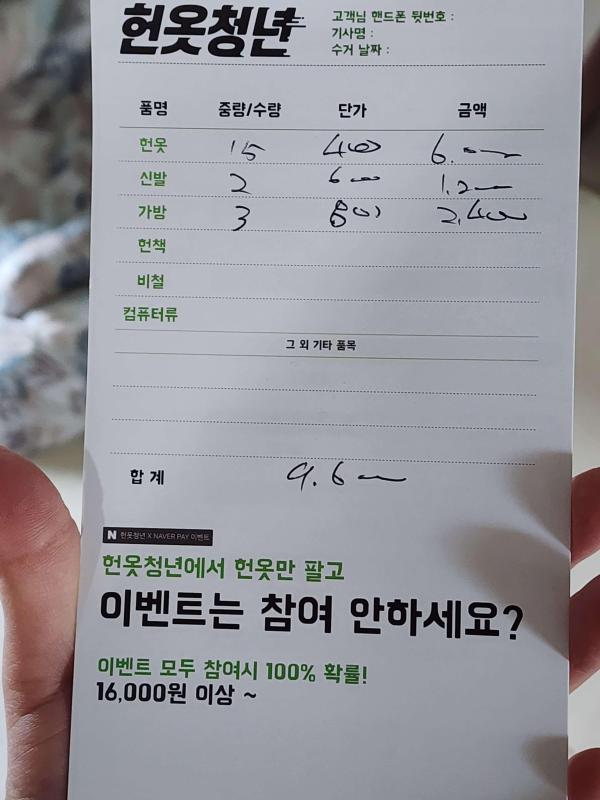 헌옷청년
고객님 핸드폰 뒷번호 :
기사명 :
수거 날짜 :
품명 중량/수량 단가 금액
헌옷 15 400 6.000
신발 2 600 1.200
가방 3 800 2.400
헌책
비철
컴퓨터류
그 외 기타 품목
합 계 9.600
N 헌옷청년 X NAVER PAY 이벤트
헌옷청년에서 헌옷만 팔고
이벤트는 참여 안하세요?
이벤트 모두 참여시 100% 확률!
16,000원 이상 ~